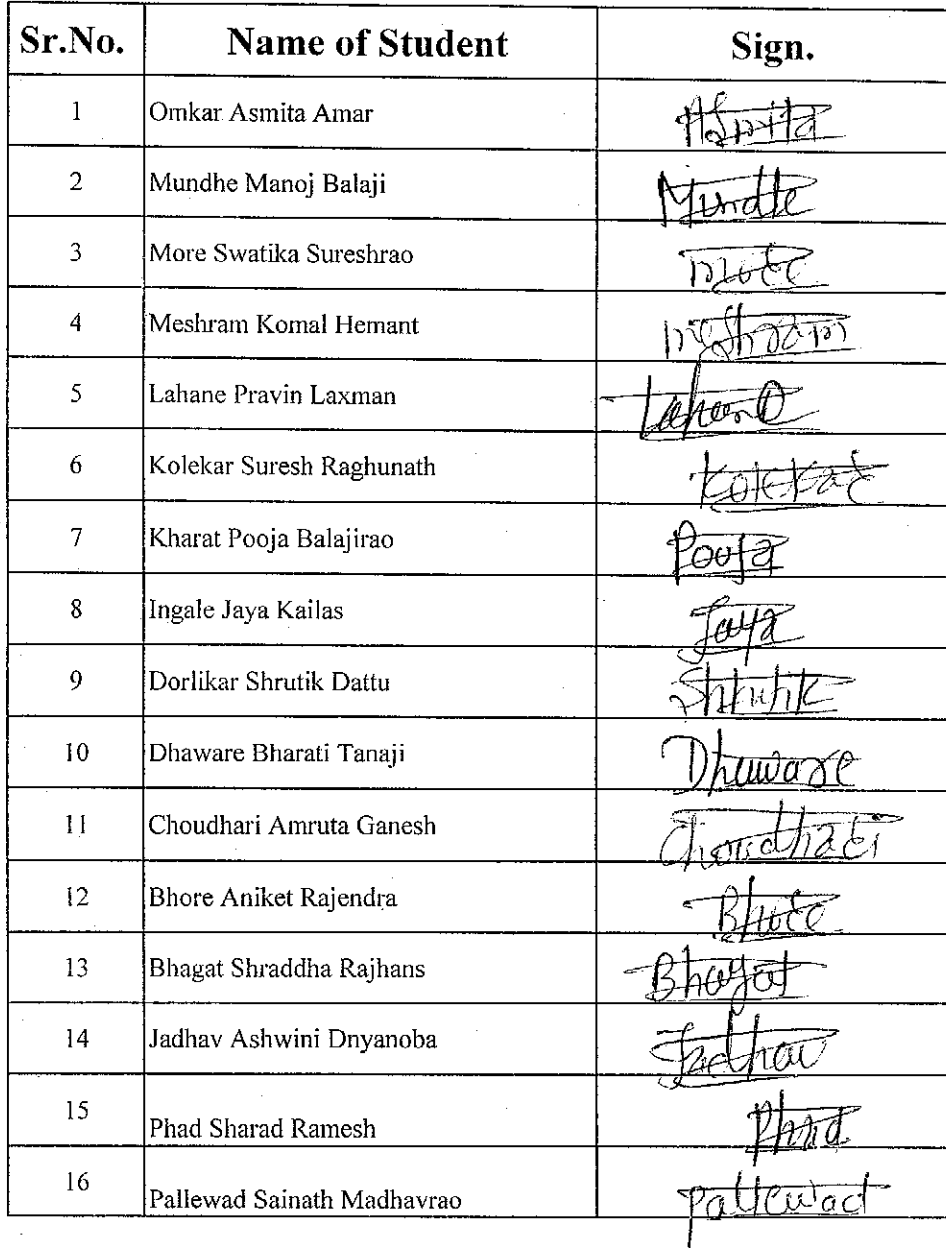 Sr.No. Name of Student Sign.
1 Omkar Asmita Amar Asmita
2 Mundhe Manoj Balaji Mundle
3 More Swatika Sureshrao more
4 Meshram Komal Hemant meshram
5 Lahane Pravin Laxman
6 Kolekar Suresh Raghunath Kolekar
7 Kharat Pooja Balajirao Pooja
8 Ingale Jaya Kailas Jaya
9 Dorlikar Shrutik Dattu Shrutik
10 Dhaware Bharati Tanaji Dhaware
11 Choudhari Amruta Ganesh Choudhari
12 Bhore Aniket Rajendra Bhore
13 Bhagat Shraddha Rajhans Bhagat
14 Jadhav Ashwini Dnyanoba Jadhav
15 Phad Sharad Ramesh Phad
16 Pallewad Sainath Madhavrao Pallewad